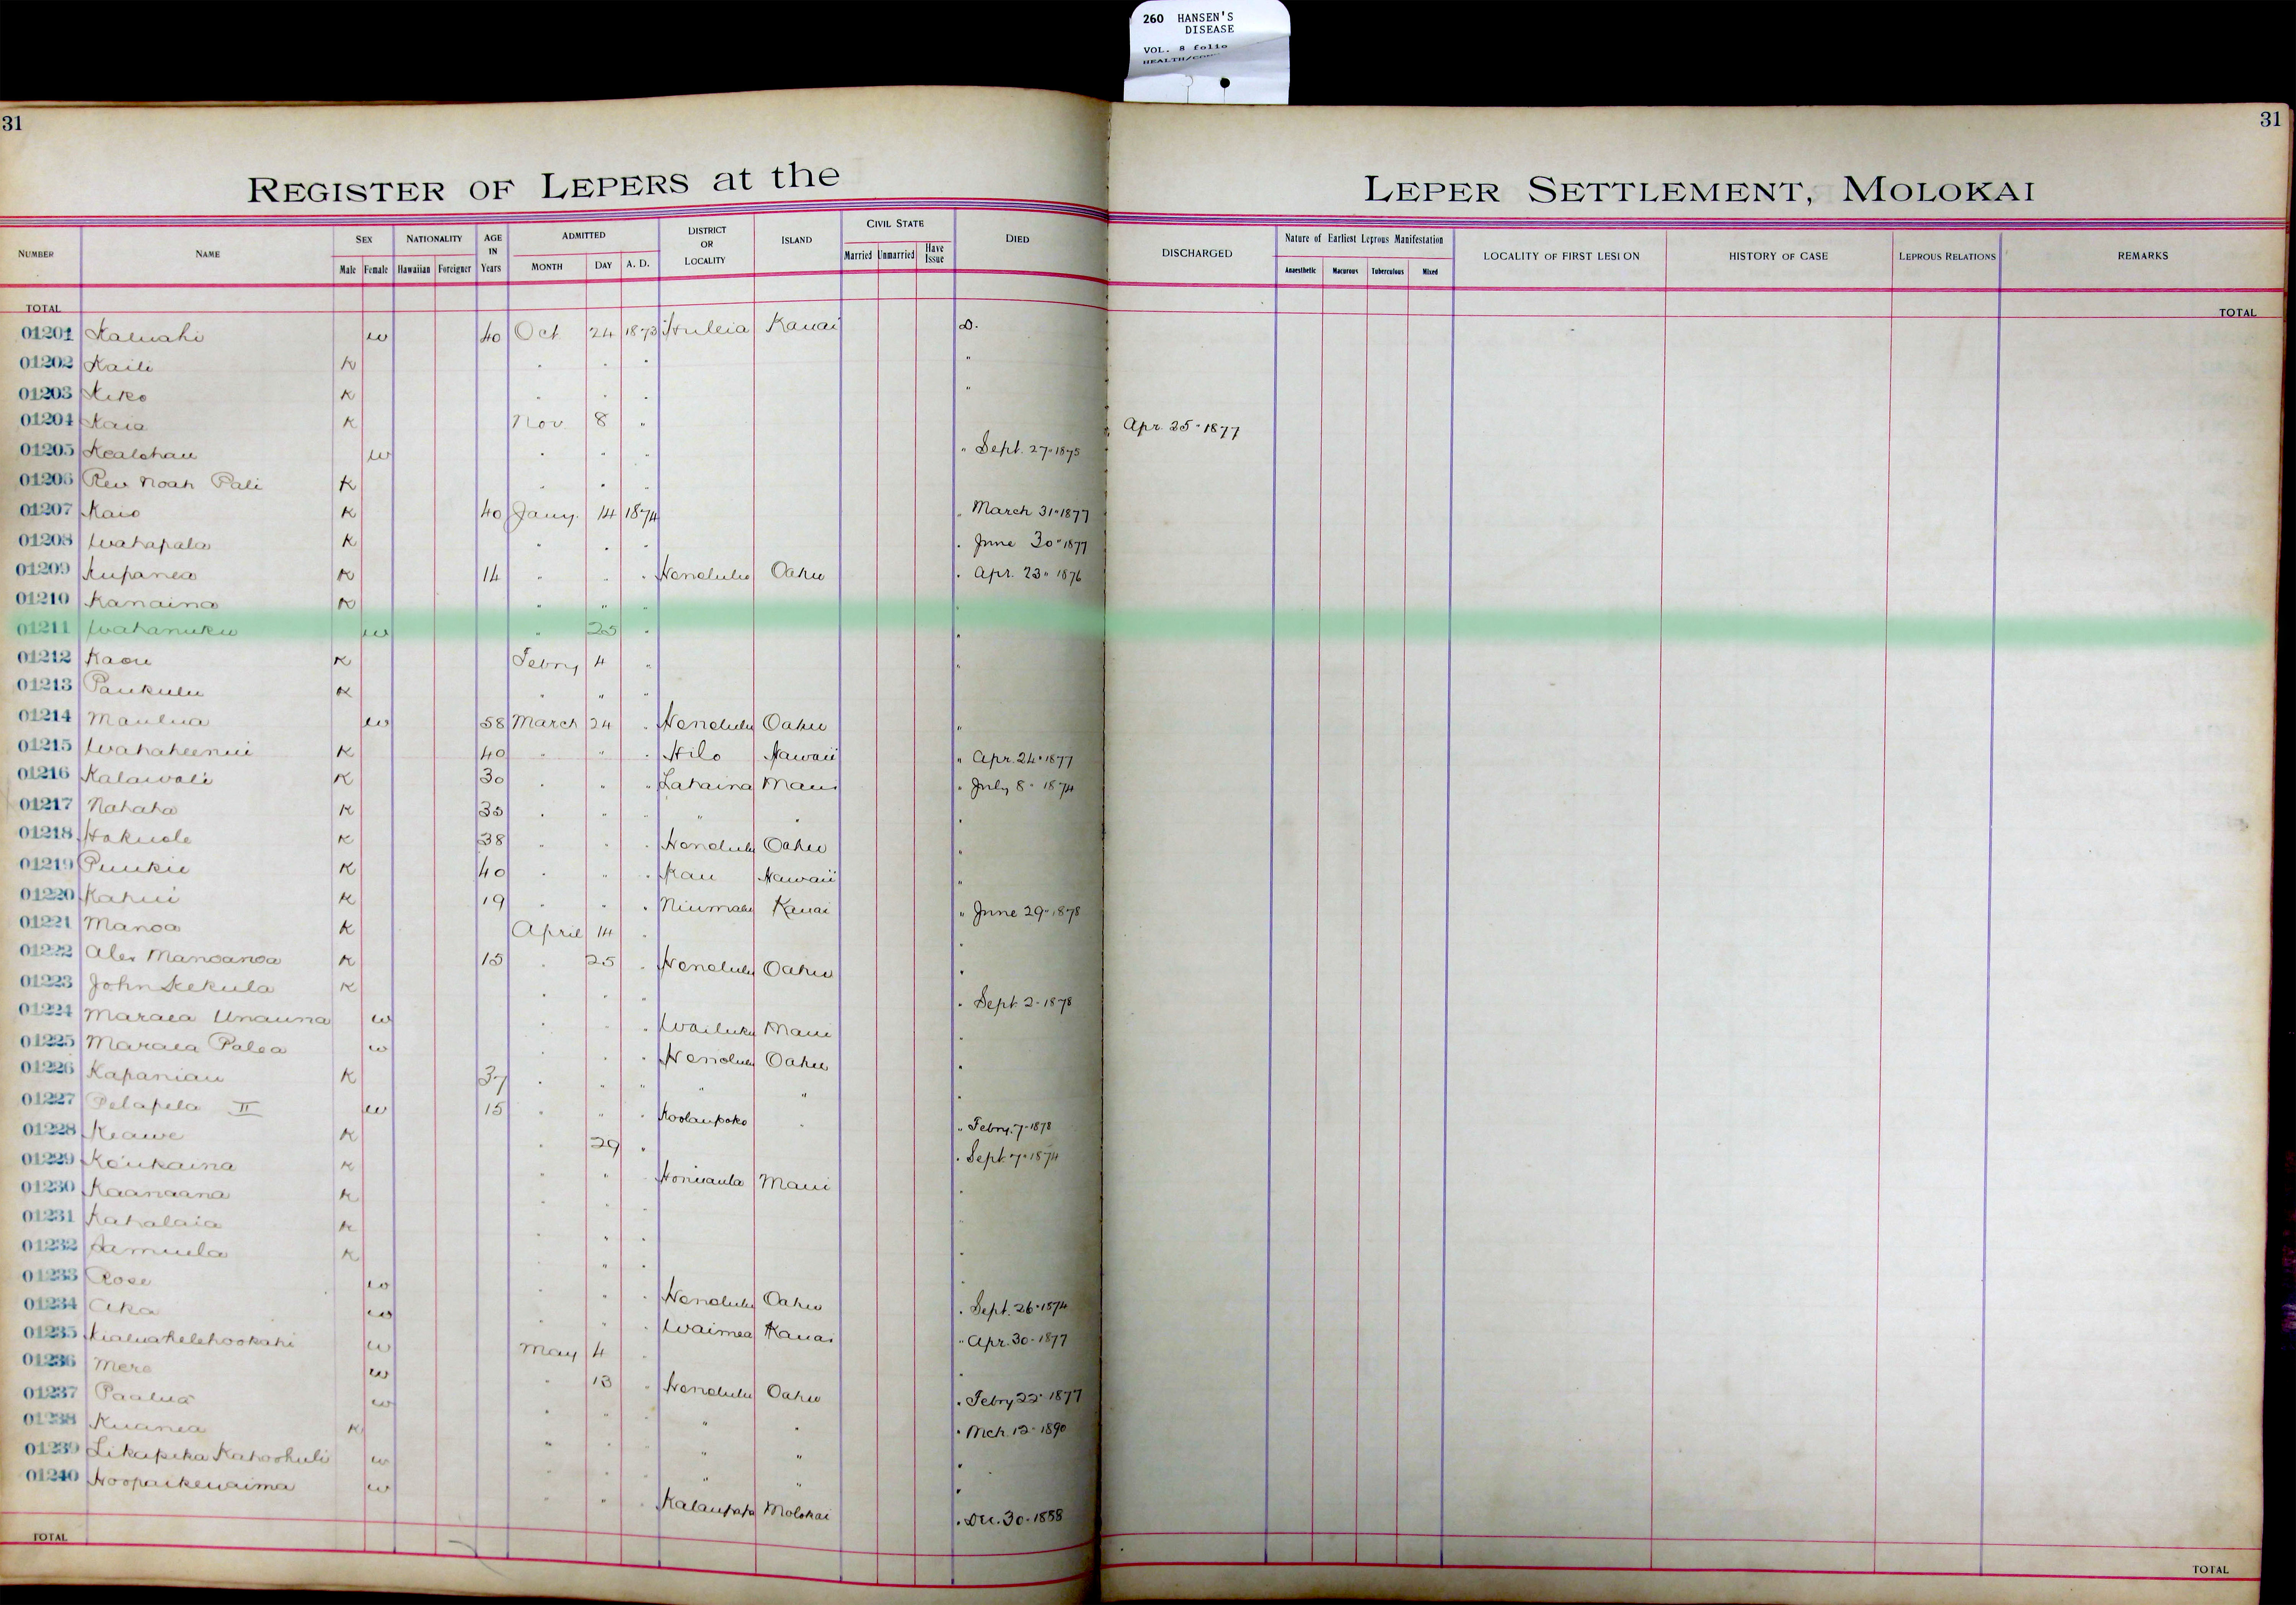 260 HANSEN'S
DISEASE
VOL. 8 folio
31
31
REGISTER OF LEPERS at the
LEPER SETTLEMENT, MOLOKAI
NUMBER NAME SEX NATIONALITY AGE IN Years ADMITTED DISTRICT OR LOCALITY ISLAND CIVIL STATE DIED DISCHARGED Nature of Earliest Leprous Manifestation LOCALITY OF FIRST LESION HISTORY OF CASE LEPROUS RELATIONS REMARKS
Male Female Hawaiian Foreigner MONTH DAY A. D. Married Unmarried Have Issue Anaesthetic Macurous Tuberculous Mixed
TOTAL TOTAL
01201 Kaluahi w 40 Oct 24 1873 Huleia Kauai D.
01202 Kaili K " " " "
01203 Keko K " " " "
01204 Kaia K Nov 8 " " Apr. 25" 1877
01205 Kealohau w " " " " Sept. 27" 1875
01206 Rev Noah Pali K " " "
01207 Kaio K 40 Jany. 14 1874 " March 31" 1877
01208 Wahapala K " " " " June 30" 1877
01209 Kupanea K 14 " " " Honolulu Oahu " Apr. 23" 1876
01210 Kanaina K " " " "
01211 Wahanuku w " 25 " "
01212 Kaou K Febry 4 " "
01213 Paukulu K " " "
01214 Maulua w 58 March 24 " Honolulu Oahu "
01215 Wahaheenui K 40 " " " Hilo Hawaii " Apr. 24" 1877
01216 Kalawali K 30 " " " Lahaina Maui " July 8" 1874
01217 Nahaha K 35 " " " " " "
01218 Hokuole K 38 " " " Honolulu Oahu "
01219 Puukie K 40 " " " Kau Hawaii "
01220 Kahui K 19 " " " Niumalu Kauai " June 29" 1878
01221 Manoa K April 14 " "
01222 Alex Manoanoa K 15 " 25 " Honolulu Oahu "
01223 John Kekula K " " " " Sept. 2" 1878
01224 Maraea Unauna w " " " Wailuku Maui "
01225 Maraea Palea w " " " Honolulu Oahu "
01226 Kapaniau K 37 " " " " " "
01227 Pelapela II w 15 " " " Koolaupoko " " Febry. 7" 1878
01228 Keawe K " 29 " " Sept. 7" 1874
01229 Keukaina K " " " Honuaula Maui "
01230 Kaanaana K " " "
01231 Kahalaia K " " " "
01232 Samuela K " " " "
01233 Rose w " " " Honolulu Oahu " Sept. 26" 1874
01234 Aka w " " " Waimea Kauai " Apr. 30" 1877
01235 Kialuahelehookahi w May 4 " "
01236 Mere w " 13 " Honolulu Oahu " Febry 22" 1877
01237 Paalua w " " " " " " Mch 12" 1890
01238 Kuanea K " " " " " "
01239 Likapeka Kahoohuli w " " " " " "
01240 Hoopaikewaima w " " " Kalaupapa Molokai " Dec. 30" 1888
TOTAL TOTAL